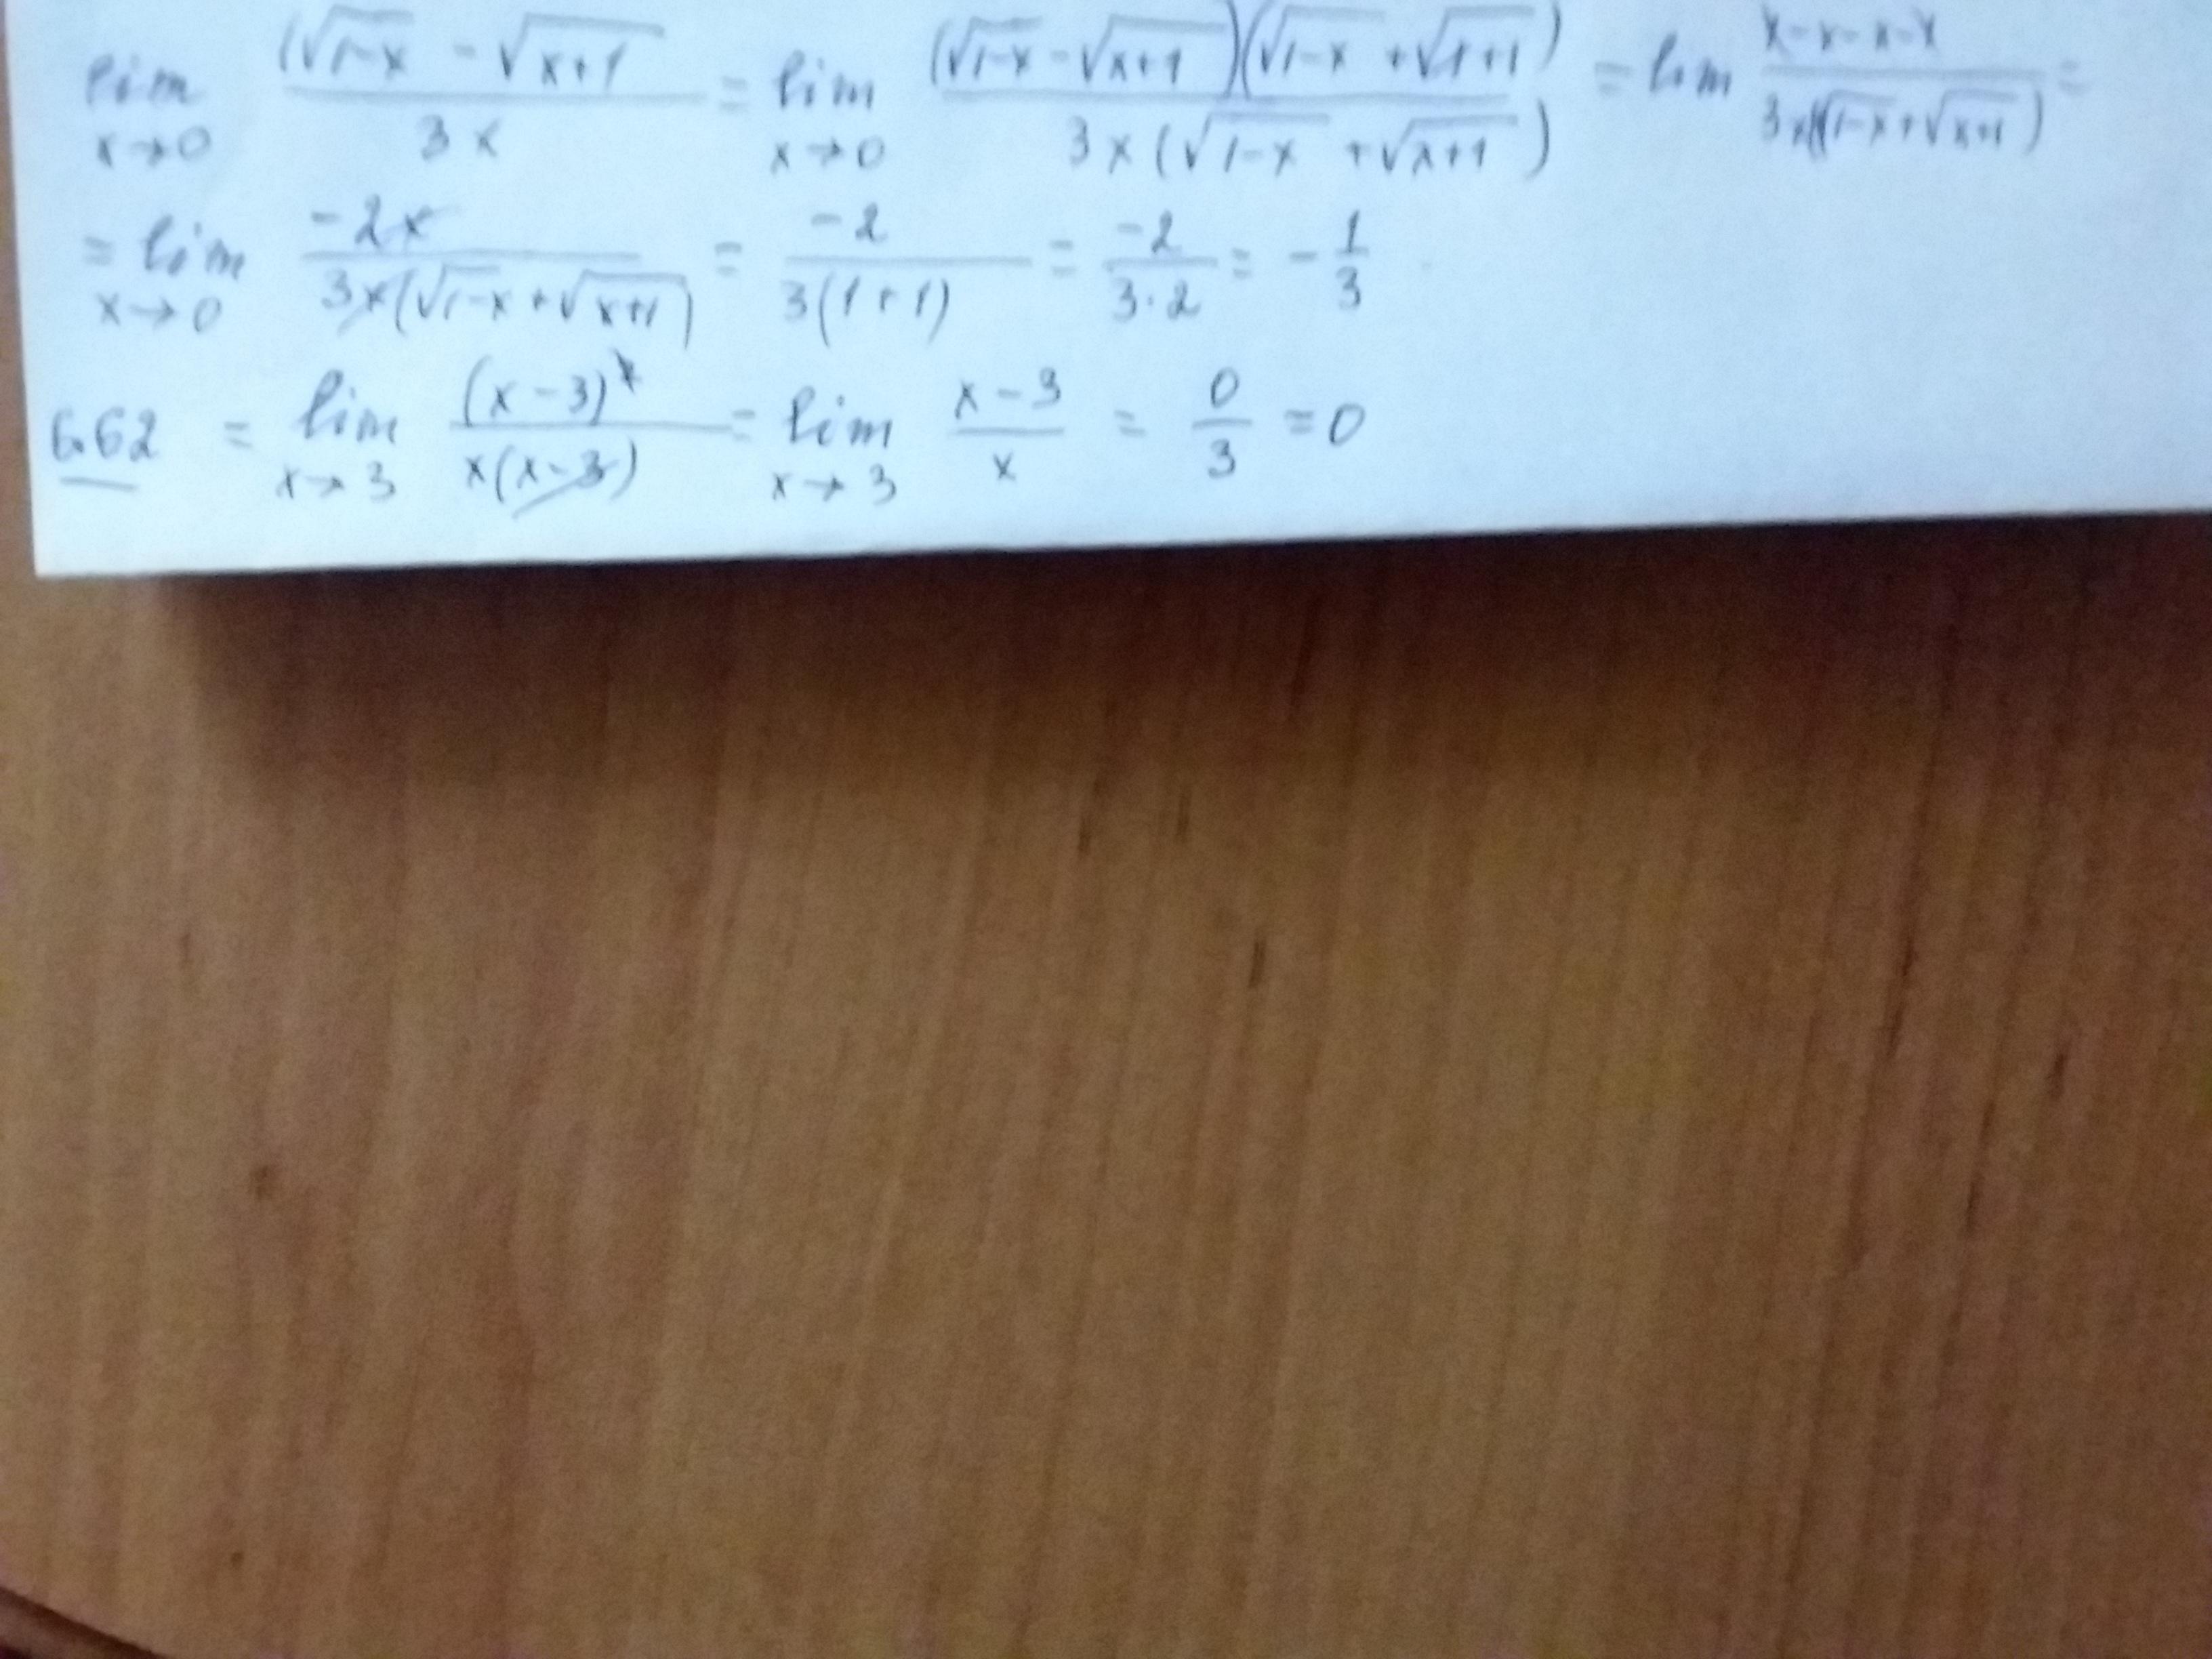 lim x→0 (√1-x - √x+1 / 3x = lim x→0 (√1-x - √x+1)(√1-x + √1+1) / 3x(√1-x + √x+1) = lim x-x-x-x / 3x(√1-x + √x+1) =
= lim x→0 -2x / 3x(√1-x + √x+1) = -2 / 3(1+1) = -2 / 3·2 = - 1/3
6.62 = lim x→3 (x-3) / x(x-3) = lim x→3 x-3 / x = 0/3 = 0